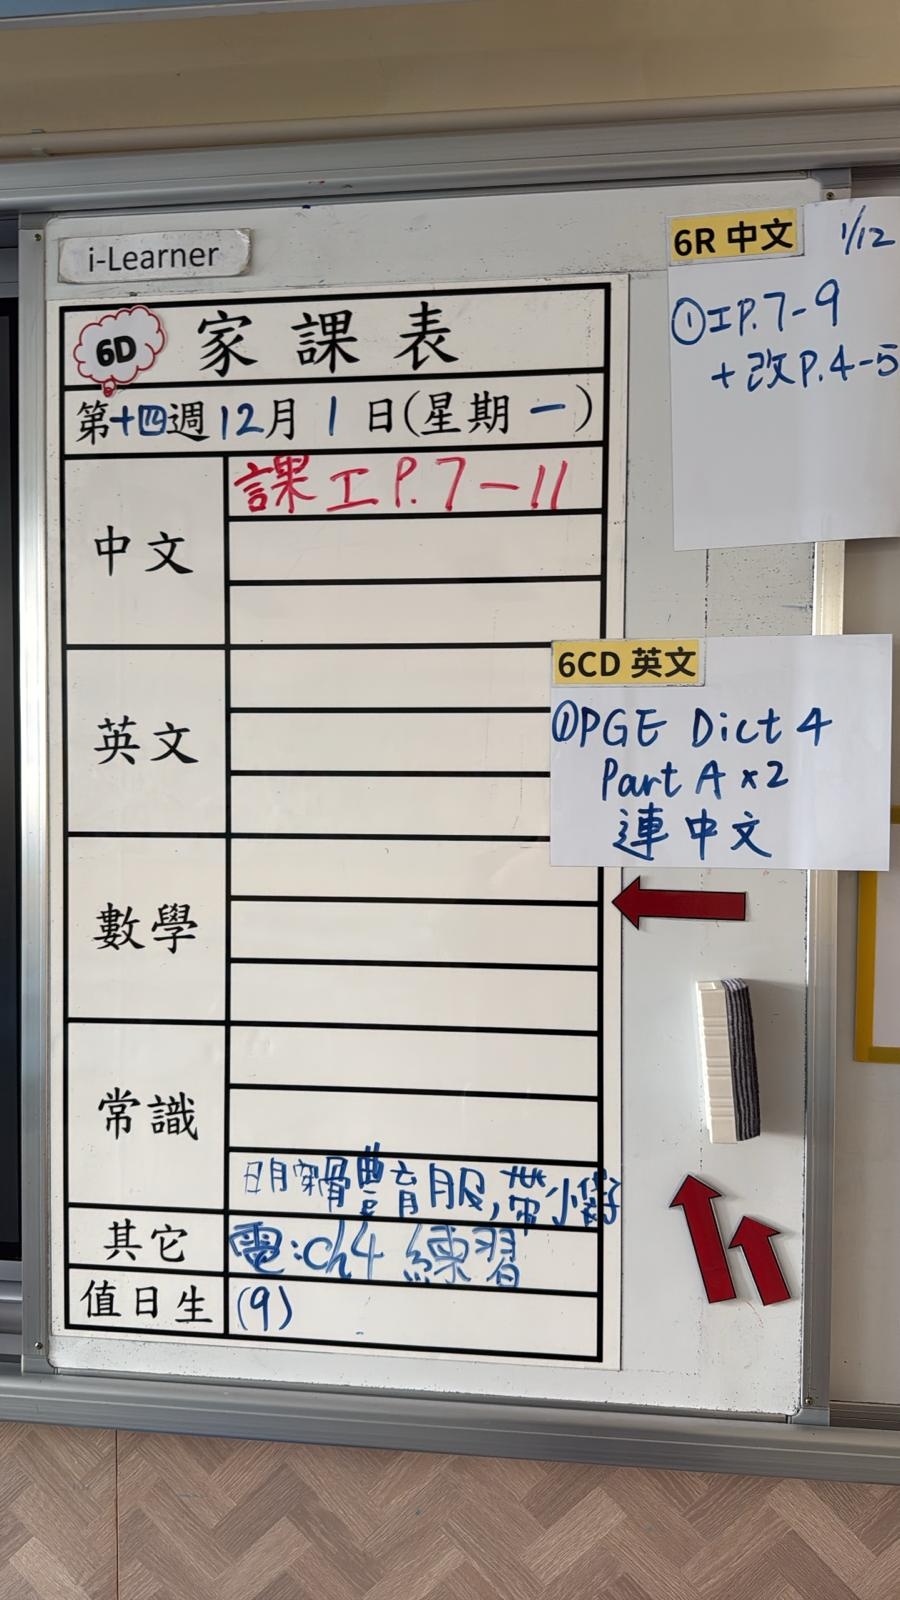 i-Learner
6D 家課表
第十四週12月1日(星期一)
中文
課工P.7-11
英文
數學
常識
明穿體育服,帶小
其它
電:ch4 練習
值日生
(9)
6R 中文 1/12
①工P.7-9
+改P.4-5
6CD 英文
①PGE Dict 4
Part A x2
連中文